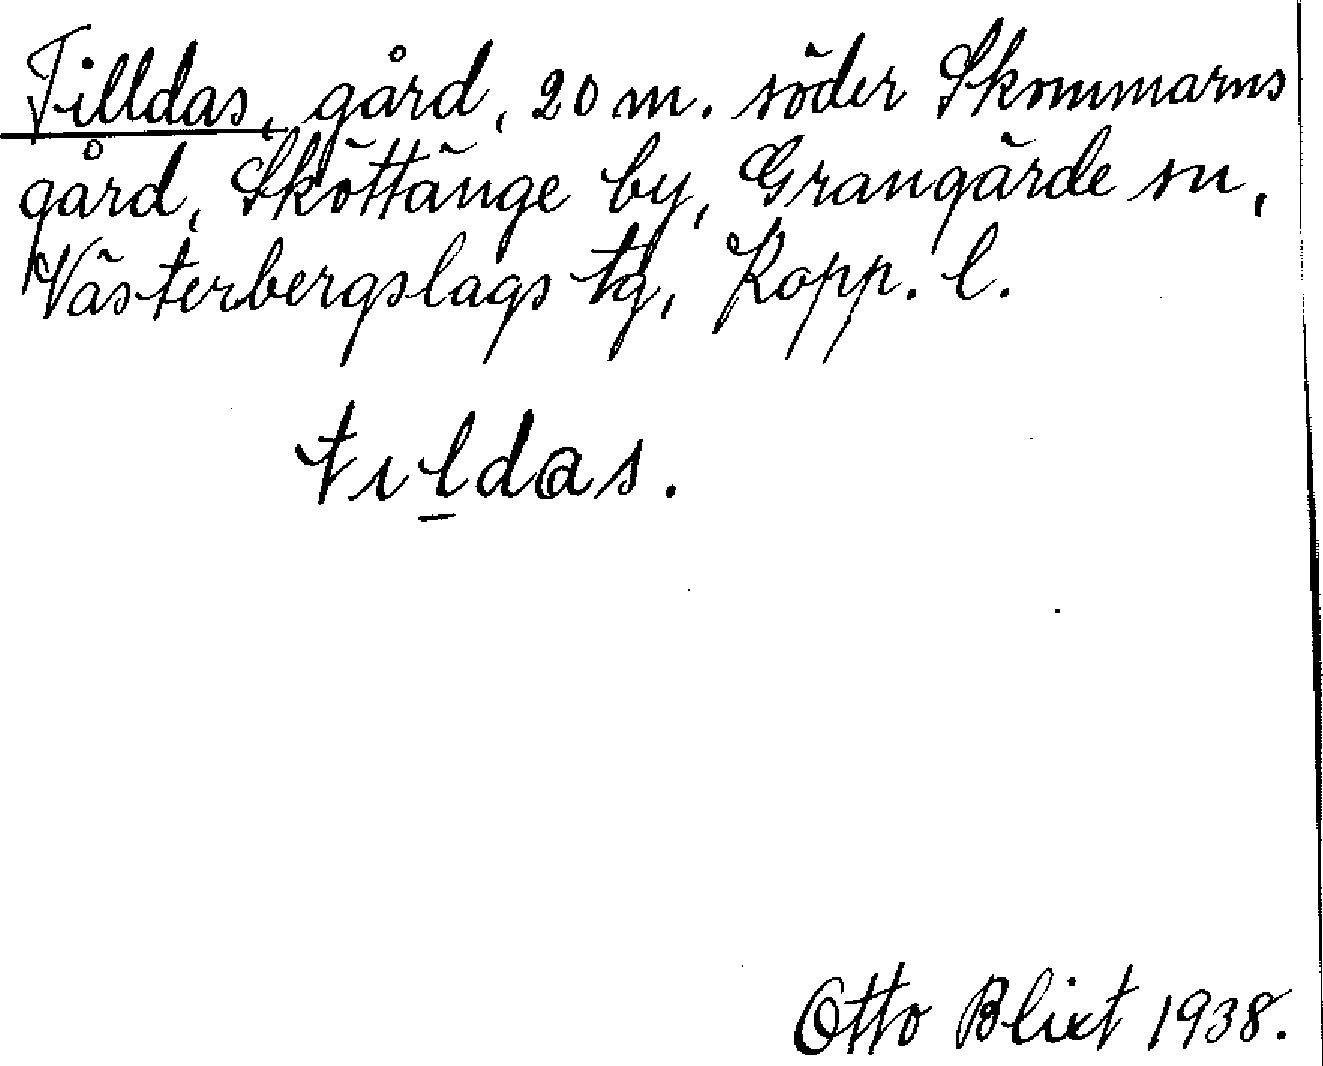 Tilldas, gård, 20 m. söder Skommarns
gård, Sköttänge by, Grangärde sn,
Västerbergslags tg, Kopp. l.
tıl̲das.
Otto Blixt 1938.